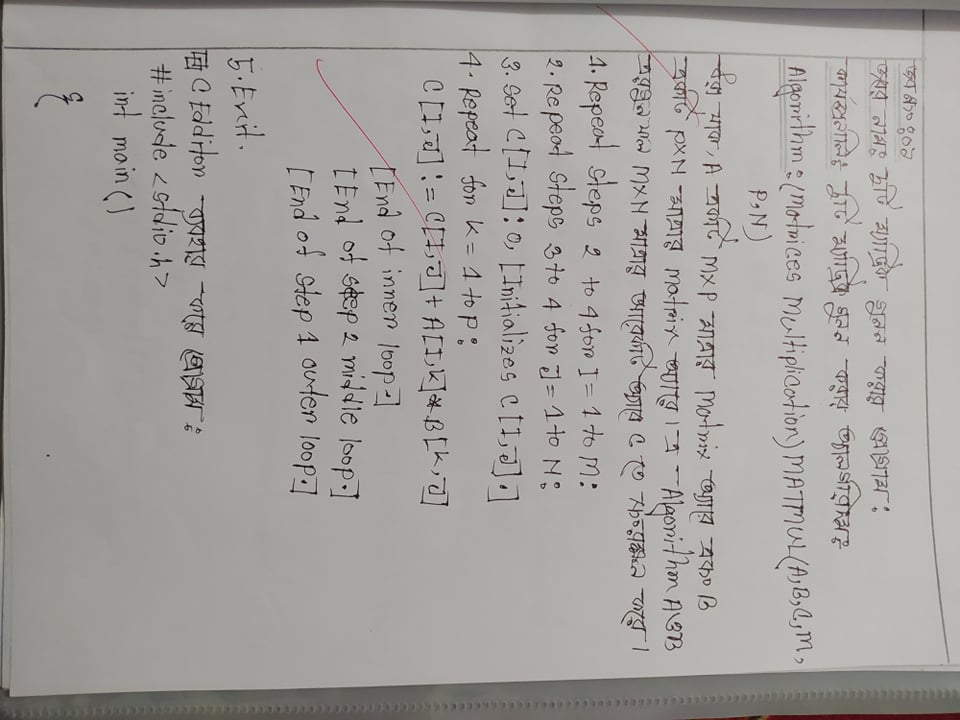 জব নং ঃ ০৮
জবের নামঃ দুটি ম্যাট্রিক্স গুনন করার প্রোগ্রাম :
কার্যপ্রনালিঃ দুটি ম্যাট্রিক্স গুনন করার অ্যালগরিদমঃ
Algorithm : (Matrices Multiplication) MATMUL (A,B,C,M,
P,N)
ধরা যাক, A একটি M×P মাত্রার Matrix অ্যারে এবং B
একটি P×N মাত্রার Matrix অ্যারে। এ Algorithm A ও B
গুনফল M×N মাত্রার আরেকটি অ্যারে C তে সংরক্ষন করে।
1. Repeat Steps 2 to 4 for I = 1 to M :
2. Repeat Steps 3 to 4 for J = 1 to N :
3. Set C[I,J] : 0, [Initializes C[I,J].]
4. Repeat for K = 1 to P :
C[I,J] := C[I,J] + A[I,K] * B[K,J]
[End of inner loop.]
[End of step 2 middle loop.]
[End of step 1 outer loop.]
5. Exit.
C Edition ব্যবহার করে প্রোগ্রাম :
#include <stdio.h>
int main()
{